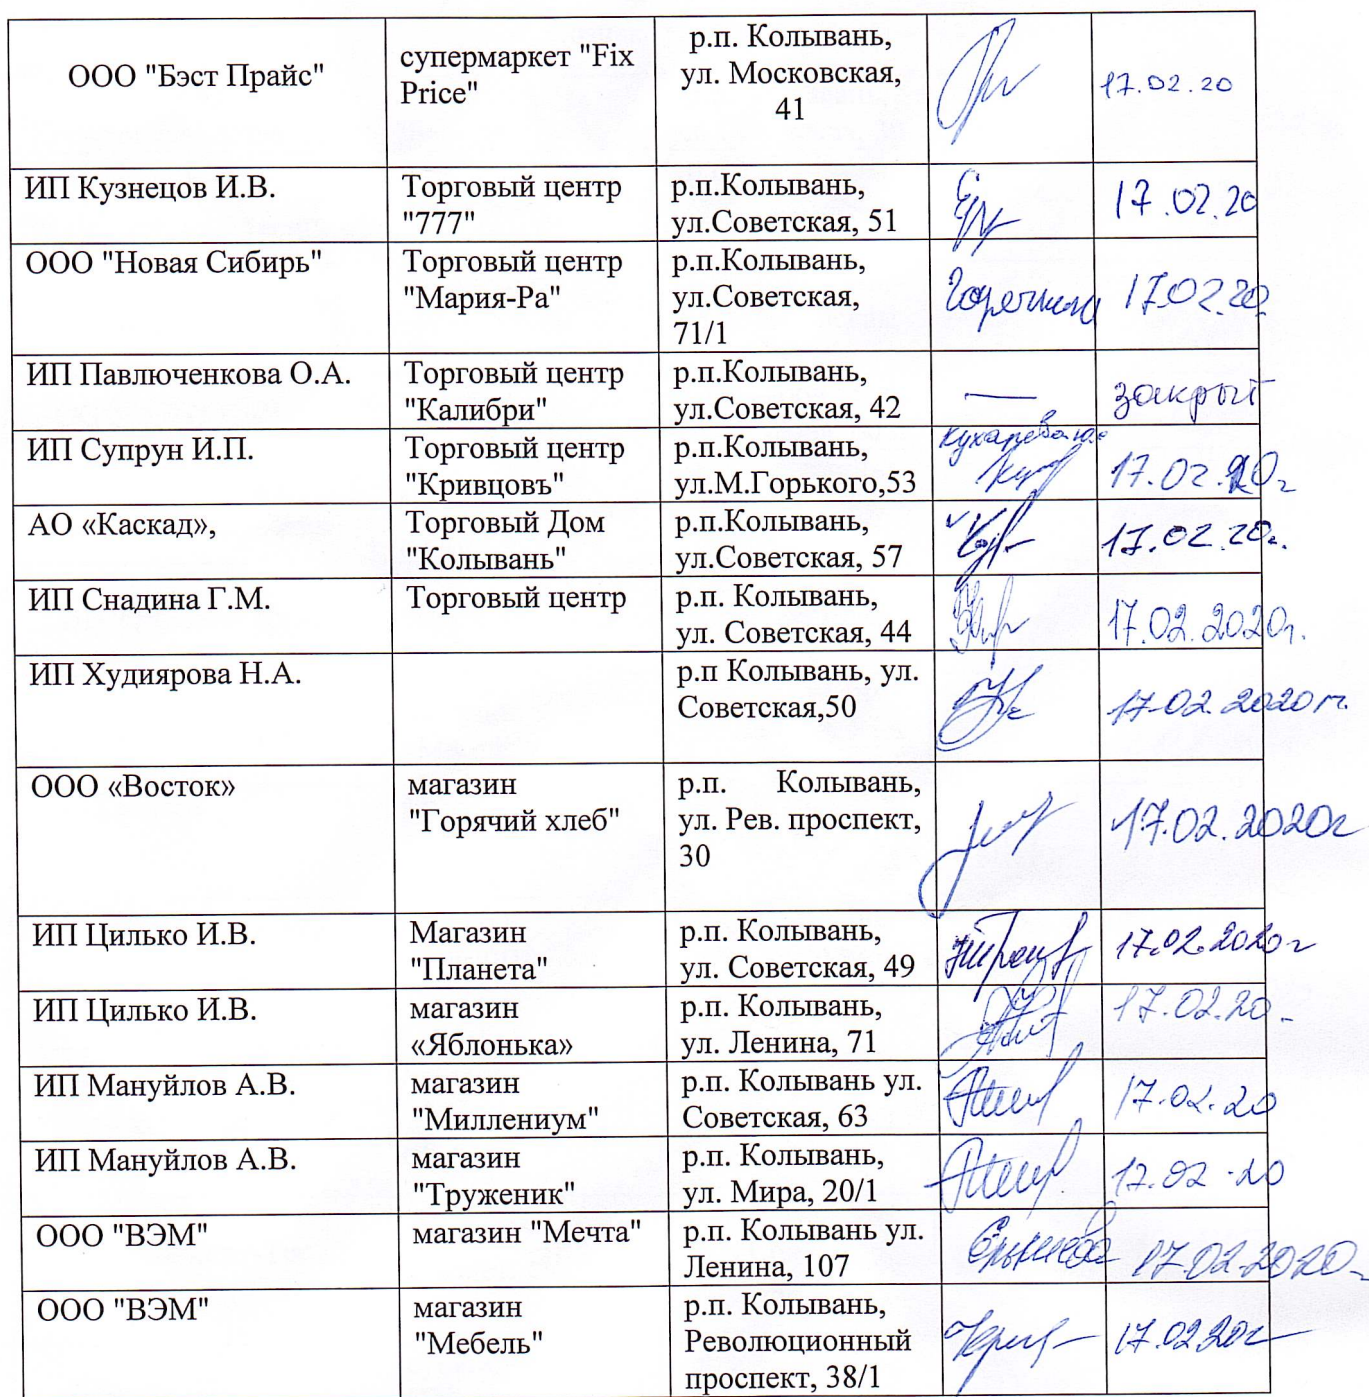 ООО "Бэст Прайс"
супермаркет "Fix
Price"
р.п. Колывань,
ул. Московская,
41
17.02.20
ИП Кузнецов И.В.
Торговый центр
"777"
р.п.Колывань,
ул.Советская, 51
17.02.20
ООО "Новая Сибирь"
Торговый центр
"Мария-Ра"
р.п.Колывань,
ул.Советская,
71/1
17.02.20
ИП Павлюченкова О.А.
Торговый центр
"Калибри"
р.п.Колывань,
ул.Советская, 42
—
закрыт
ИП Супрун И.П.
Торговый центр
"Кривцовъ"
р.п.Колывань,
ул.М.Горького,53
17.02.20г
АО «Каскад»,
Торговый Дом
"Колывань"
р.п.Колывань,
ул.Советская, 57
17.02.20г.
ИП Снадина Г.М.
Торговый центр
р.п. Колывань,
ул. Советская, 44
17.02.2020г.
ИП Худиярова Н.А.
р.п Колывань, ул.
Советская,50
17.02.2020г.
ООО «Восток»
магазин
"Горячий хлеб"
р.п. Колывань,
ул. Рев. проспект,
30
17.02.2020г
ИП Цилько И.В.
Магазин
"Планета"
р.п. Колывань,
ул. Советская, 49
17.02.2020г
ИП Цилько И.В.
магазин
«Яблонька»
р.п. Колывань,
ул. Ленина, 71
17.02.20.
ИП Мануйлов А.В.
магазин
"Миллениум"
р.п. Колывань ул.
Советская, 63
17.02.20
ИП Мануйлов А.В.
магазин
"Труженик"
р.п. Колывань,
ул. Мира, 20/1
17.02.20
ООО "ВЭМ"
магазин "Мечта"
р.п. Колывань ул.
Ленина, 107
17.02.2020
ООО "ВЭМ"
магазин
"Мебель"
р.п. Колывань,
Революционный
проспект, 38/1
17.02.20г